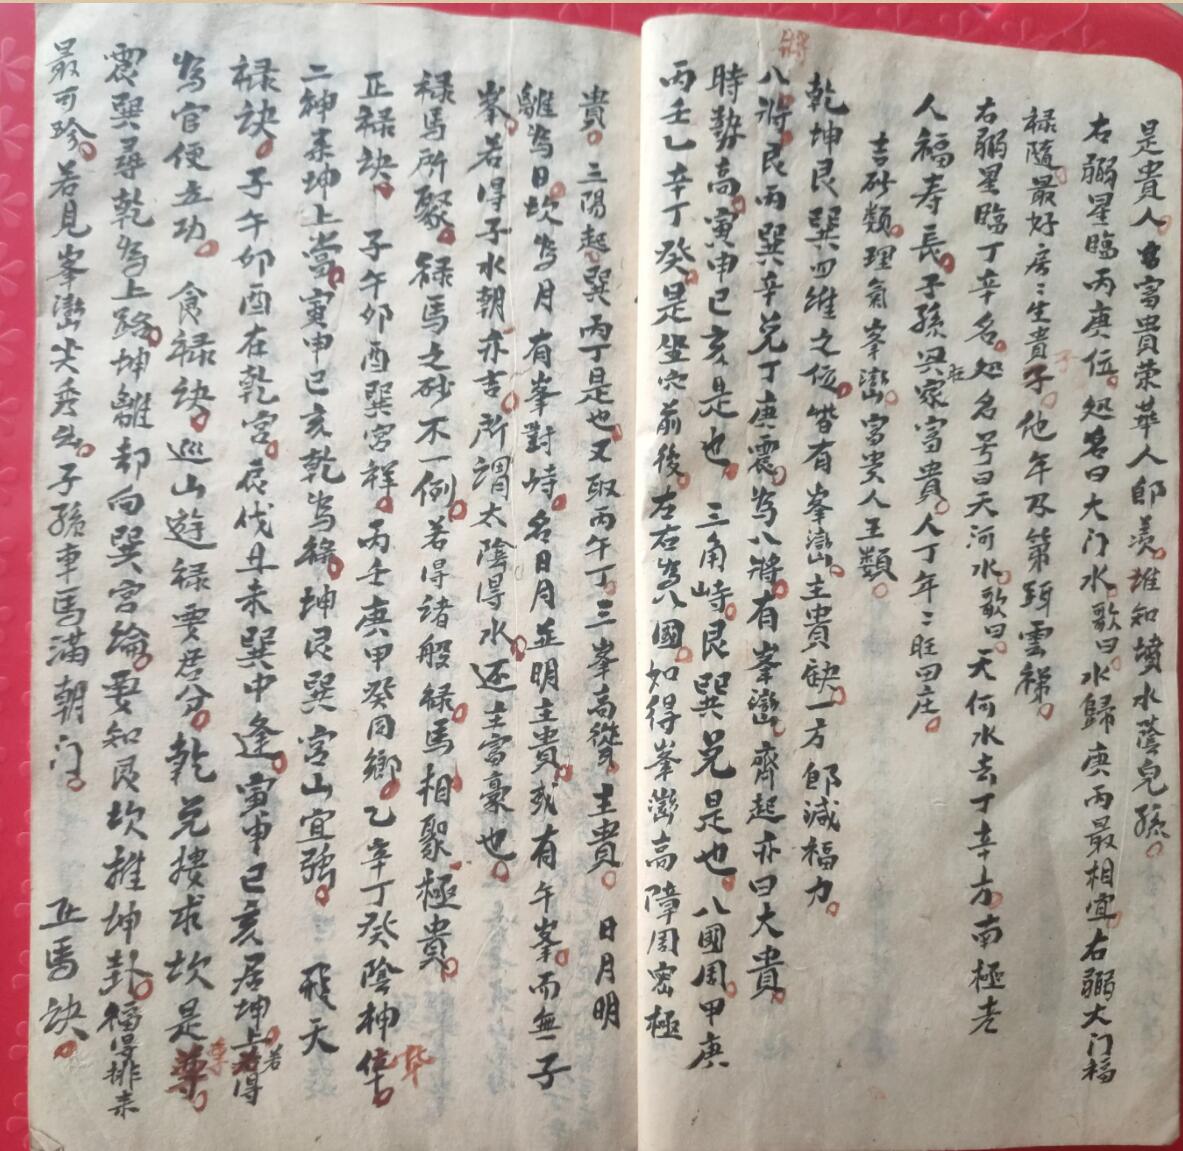 是貴人。富貴荣華人郎羨。誰知墳水蔭皃孫。
右弼星臨丙庚位。処名曰大门水。歌曰。水歸庚丙最相宜。右弼大门福
禄隨。最好房〻生貴子。他年及第頭雲梯。
右弼星臨丁辛名。処名号曰天河水。歌曰。天何水去丁辛方。南極老
人福寿長。子孫興家富貴。人丁年〻旺田庄。
吉砂類。理氣峯巒。富贵人王類。
乾坤艮巽四維之位。皆有峯巒。主貴。缺一方郎減福力。
八將。艮丙巽辛兑丁庚震。為八將。有峯巒齊起亦曰大貴。
時勢高。寅申巳亥是也。三角峙。艮巽兑是也。八國周。甲庚
丙壬乙辛丁癸。是坐穴前後。左右為八國。如得峯巒高障周密極
貴。三陽起。巽丙丁是也。又取丙午丁。三峯高聳。主貴。日月明
離為日。坎為月。有峯對峙。名日月並明主貴。或有午峯。而無子
峯。若得子水朝亦吉。所謂太陰得水。还主富豪也。
禄馬所聚。禄馬之砂不一例。若得诸般禄。馬相聚。極貴。
正禄訣。子午卯酉巽宮釋。丙壬庚甲癸同鄉。乙辛丁癸陰神佳。
二神来坤上當。寅申巳亥乾為禄。坤艮巽宮山宜強。飛天
禄訣。子午卯酉在乾宮。辰戌丑未巽中逢。寅申巳亥居坤上。若得
為官便立功。食禄訣。巡山遊禄要君分。乾兑摟求坎是尊。
震巽尋乾為上路。坤離却向巽宮綸。要知艮坎推坤卦。福曼排来
最可珍。若見峯巒尖秀出。子孫車馬滿朝门。正馬訣。